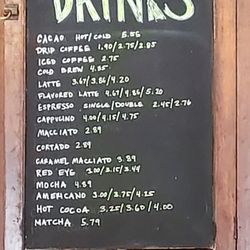 DRINKS
CACAO HOT/COLD 5.55
DRIP COFFEE 1.90/2.75/2.85
ICED COFFEE 2.75
COLD BREW 4.25
LATTE 3.67/3.86/4.20
FLAVORED LATTE 4.67/4.86/5.20
ESPRESSO SINGLE/DOUBLE 2.45/2.76
CAPPUCINO 4.00/4.15/4.75
MACCIATO 2.89
CORTADO 2.89
CARAMEL MACCIATO 3.89
RED EYE 3.00/3.15/3.44
MOCHA 4.89
AMERICANO 3.00/3.75/4.25
HOT COCOA 3.25/3.60/4.00
MATCHA 5.79